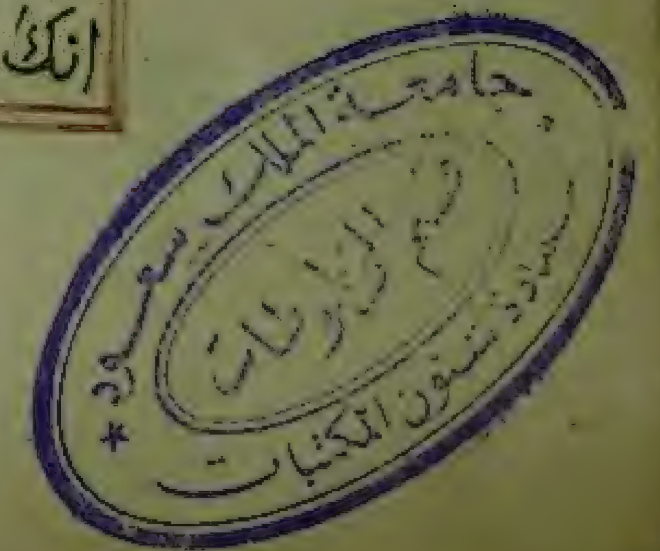 انك
جامعة الملك سعود
قسم المخطوطات
عمادة شئون المكتبات
*